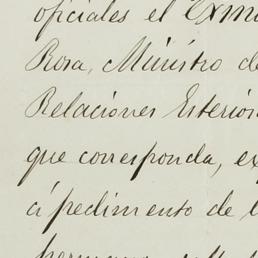 oficiales el Exmo
Rosa, Ministro de
Relaciones Esterior
que corresponda, ex
á pedimento de l
hermano